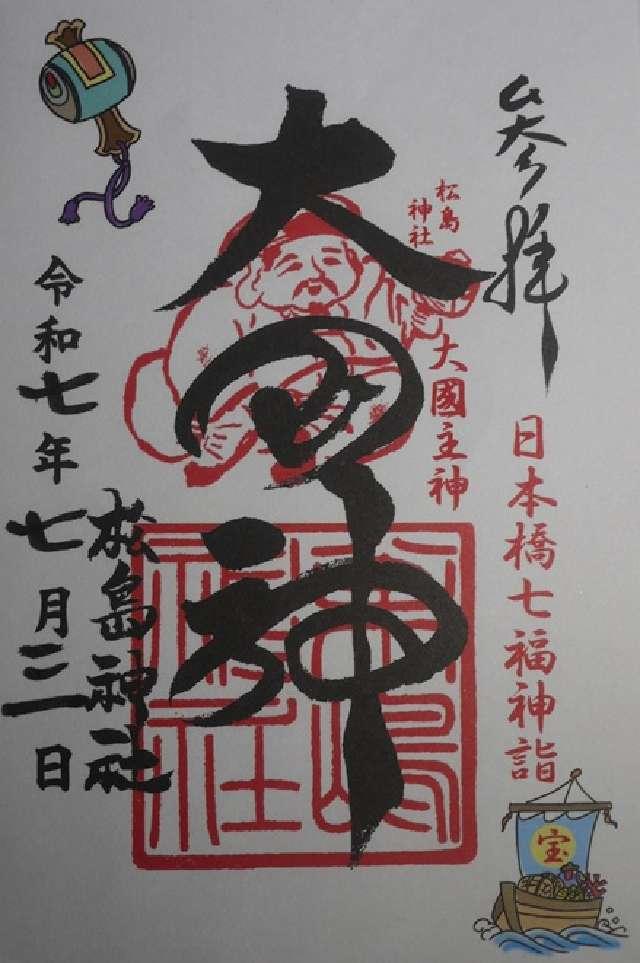 参拝
日本橋七福神詣
松島神社
大國主神
大国神
松島神社
松島神社
令和七年七月三一日
宝